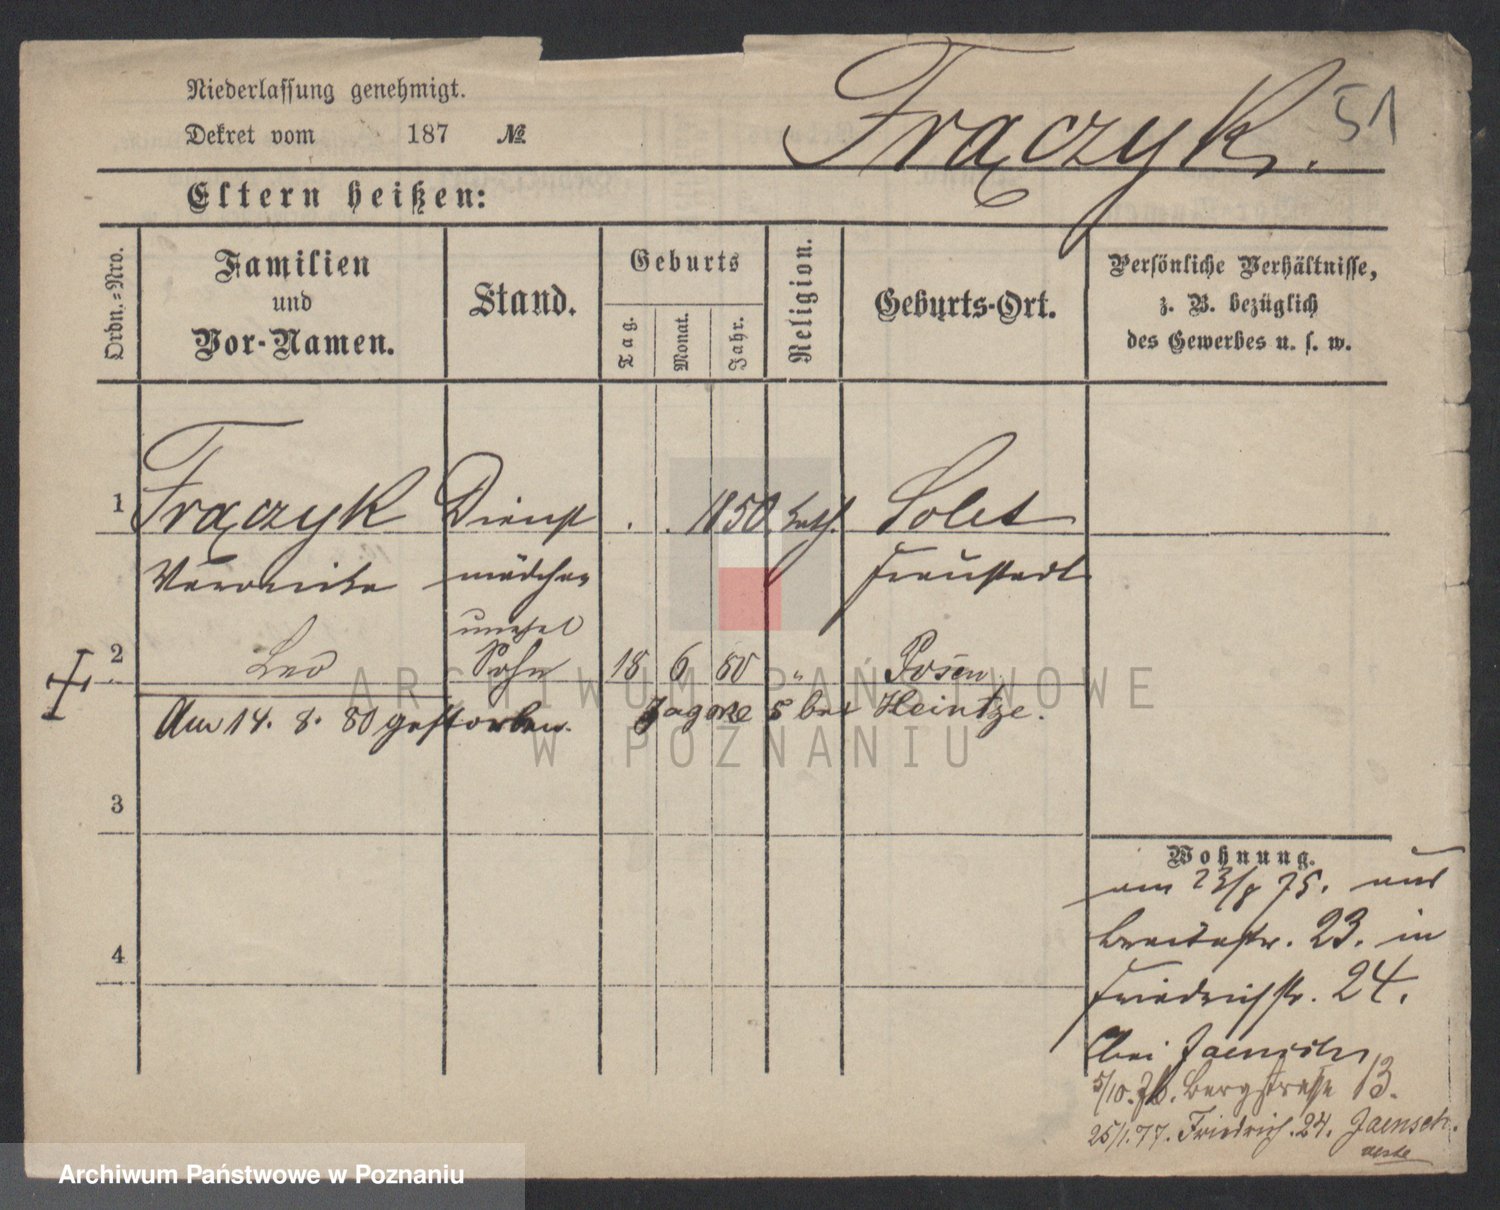 Niederlassung genehmigt.
Dekret vom 187 №
Frączyk. 51
Eltern heißen:
Ordn.-Nro.
Familien
und
Vor-Namen.
Stand.
Geburts
Tag.
Monat.
Jahr.
Religion.
Geburts-Ort.
Persönliche Verhältnisse,
z. B. bezüglich
des Gewerbes u. s. w.
1 Frączyk Dienst . . 1850. kath.
Veronika mädchen Fraustadt
unehel
2 Leo Sohn 18 6 80 " Posen
Am 14. 8. 80 gestorben. 5 bei Heintze.
3
4
Wohnung.
am 23/8 75. aus
Breitestr. 23. in
Friedrichstr. 24.
bei Jaensch
5/10. 76. Bergstrasse 13.
25/1. 77. Friedrich. 24. Jaensch.
ARCHIWUM PAŃSTWOWE
W POZNANIU
Archiwum Państwowe w Poznaniu